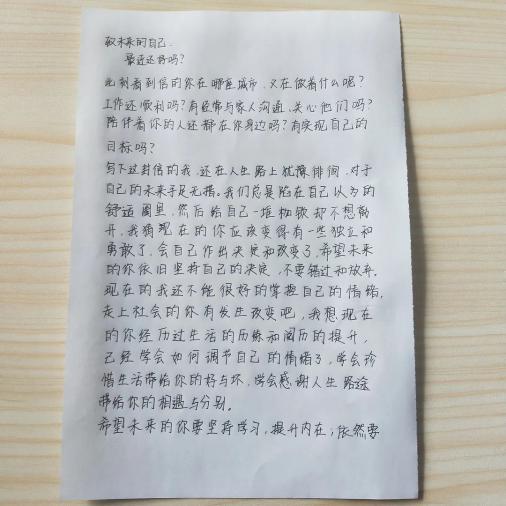 致未来的自己.
最近还好吗?
此刻看到信的你在哪座城市,又在做着什么呢?
工作还顺利吗?有经常与家人沟通、关心他们吗?
陪伴着你的人还都在你身边吗?有实现自己的
目标吗?
写下这封信的我,还在人生路上犹豫徘徊,对于
自己的未来手足无措。我们总是陷在自己认为的
舒适圈里,然后给自己一堆枷锁却不想离
开,我猜现在的你应该变得有一些独立和
勇敢了,会自己作出决定和改变了,希望未来
的你依旧坚持自己的决定,不要错过和放弃.
现在的我还不能很好的掌握自己的情绪,
走上社会的你有发生改变吧,我想现在
的你经历过生活的历练和阅历的提升,
已经学会如何调节自己的情绪了,学会珍
惜生活带给你的好与坏,学会感谢人生路途
带给你的相遇与分别。
希望未来的你要坚持学习,提升内在;依然要